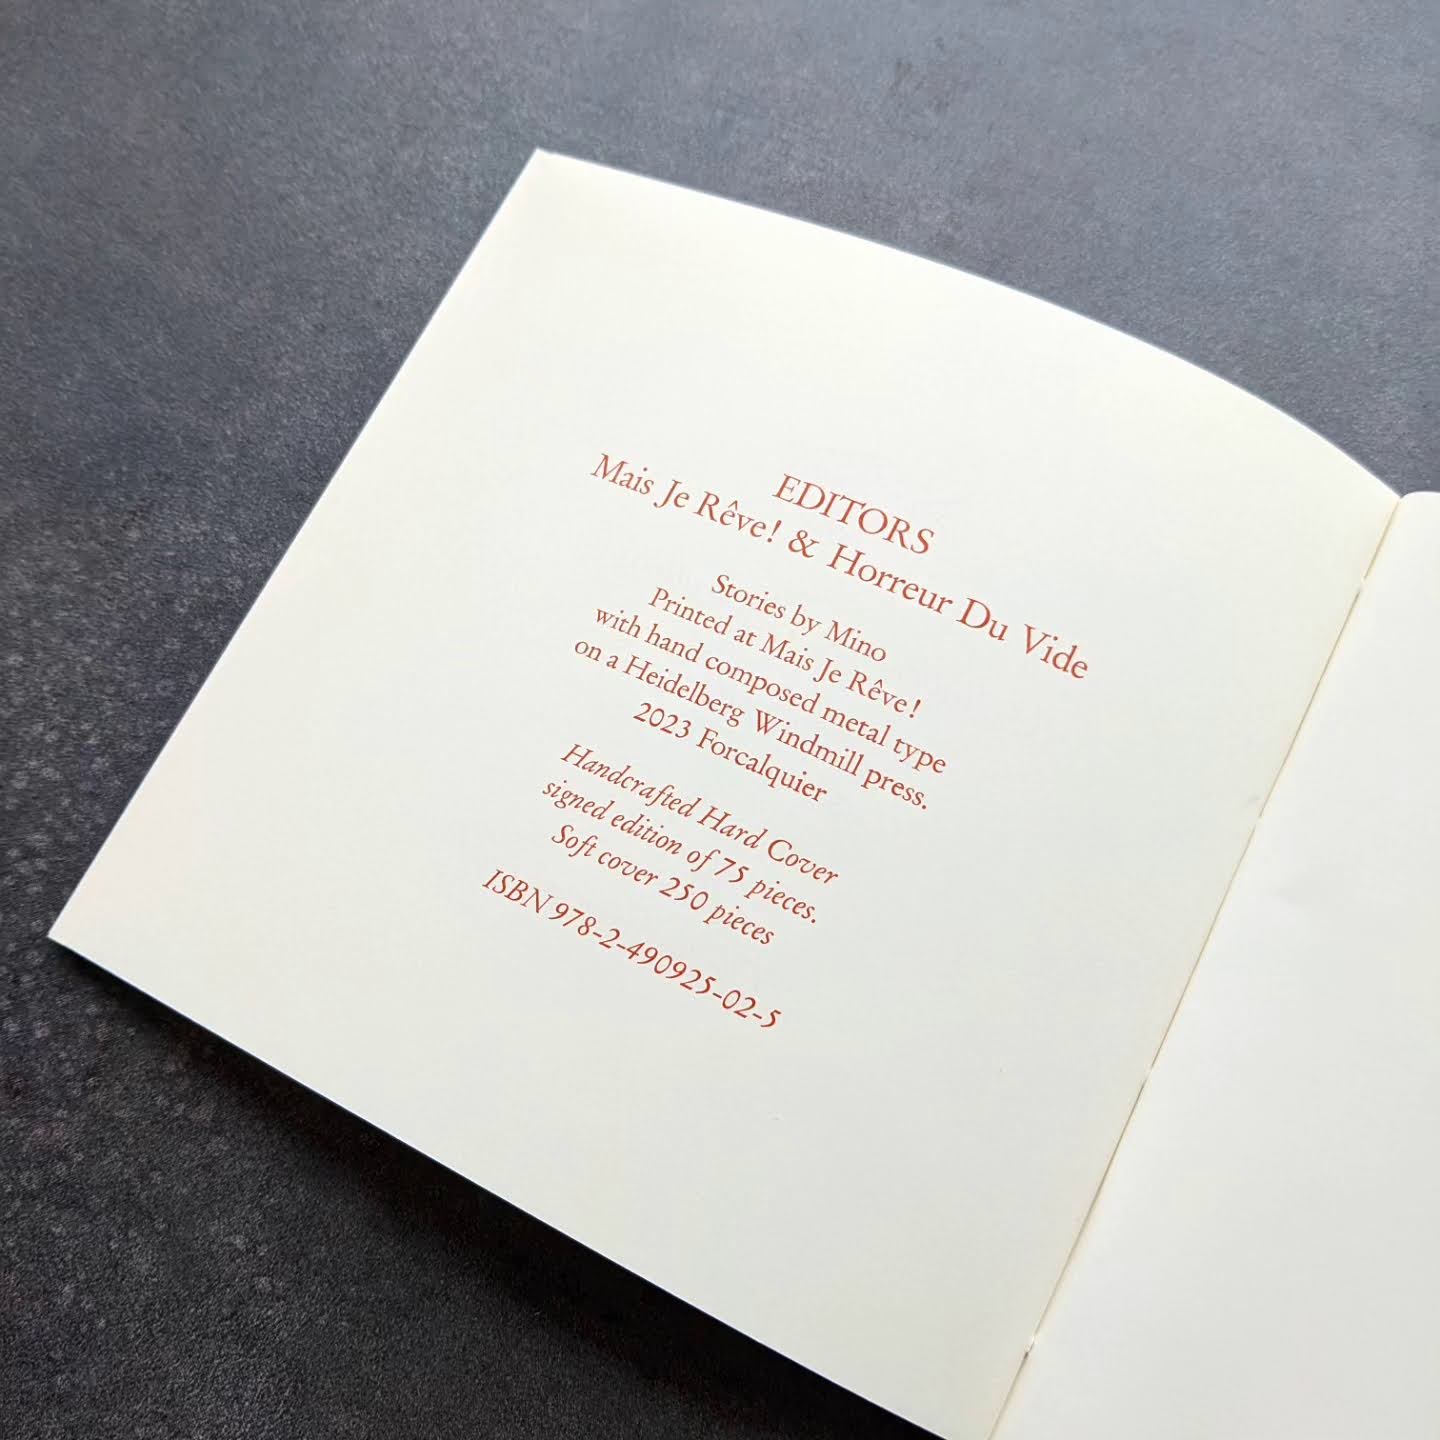 EDITORS
Mais Je Rêve! & Horreur Du Vide
Stories by Mino
Printed at Mais Je Rêve!
with hand composed metal type
on a Heidelberg Windmill press.
2023 Forcalquier
Handcrafted Hard Cover
signed edition of 75 pieces.
Soft cover 250 pieces
ISBN 978-2-490925-02-5